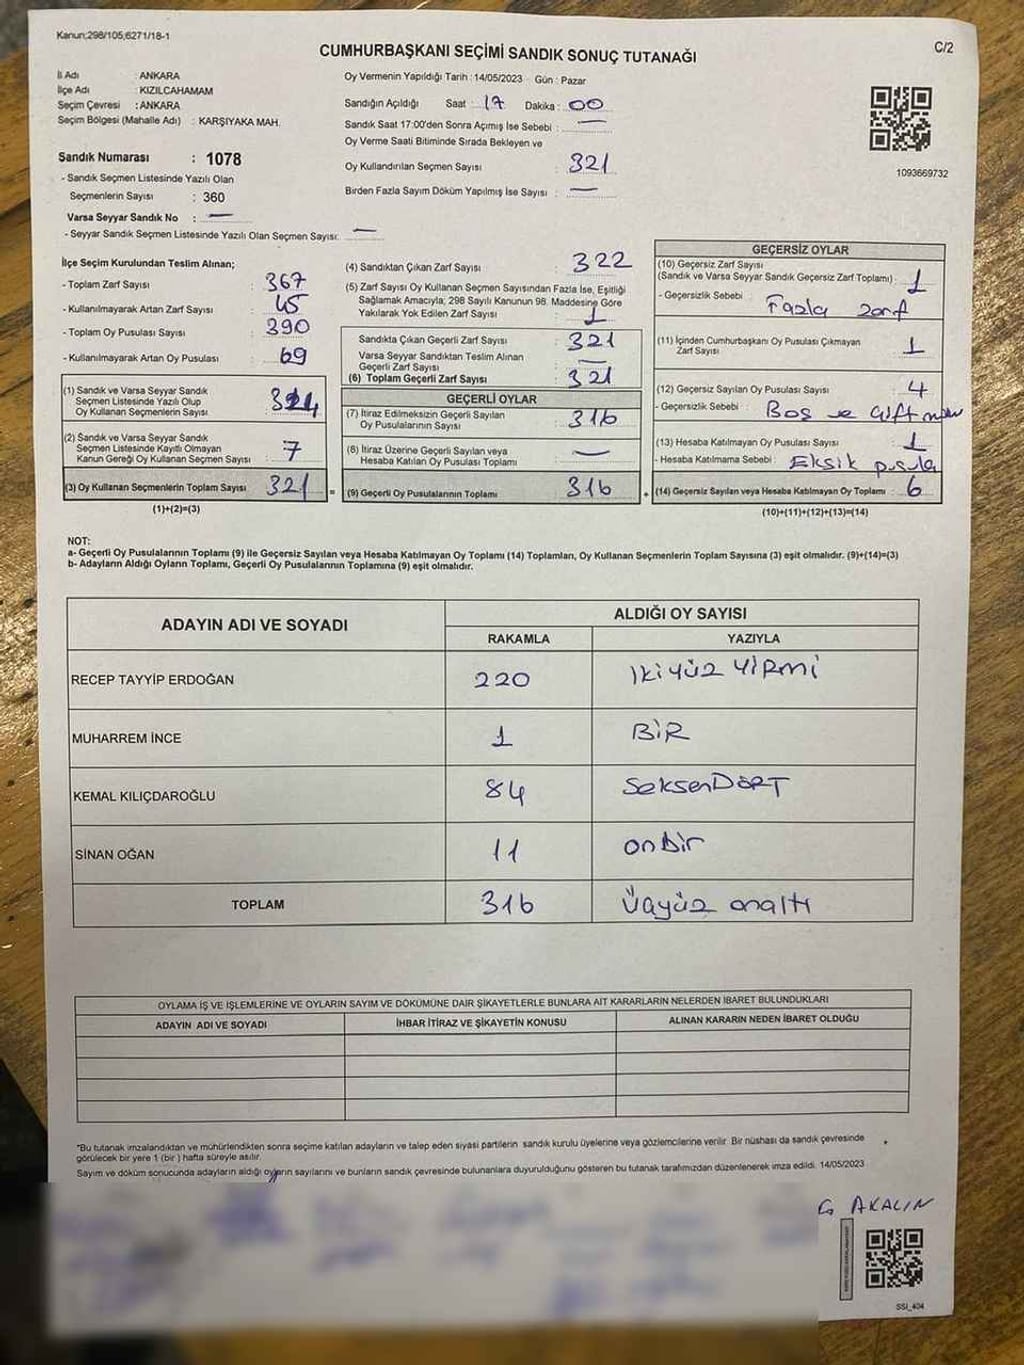 Kanun;298/105,6271/18-1
C/2
CUMHURBAŞKANI SEÇİMİ SANDIK SONUÇ TUTANAĞI
İl Adı : ANKARA
İlçe Adı : KIZILCAHAMAM
Seçim Çevresi : ANKARA
Seçim Bölgesi (Mahalle Adı) : KARŞIYAKA MAH.
Sandık Numarası : 1078
- Sandık Seçmen Listesinde Yazılı Olan
Seçmenlerin Sayısı : 360
Varsa Seyyar Sandık No : —
- Seyyar Sandık Seçmen Listesinde Yazılı Olan Seçmen Sayısı: —
Oy Vermenin Yapıldığı Tarih : 14/05/2023 Gün : Pazar
Sandığın Açıldığı Saat : 17 Dakika : 00
Sandık Saat 17:00'den Sonra Açımış İse Sebebi : —
Oy Verme Saati Bitiminde Sırada Bekleyen ve
Oy Kullandırılan Seçmen Sayısı : 321
Birden Fazla Sayım Döküm Yapılmış İse Sayısı : —
1093669732
İlçe Seçim Kurulundan Teslim Alınan;
- Toplam Zarf Sayısı : 367
- Kullanılmayarak Artan Zarf Sayısı : 45
- Toplam Oy Pusulası Sayısı : 390
- Kullanılmayarak Artan Oy Pusulası : 69
(1) Sandık ve Varsa Seyyar Sandık
Seçmen Listesinde Yazılı Olup
Oy Kullanan Seçmenlerin Sayısı : 314
(2) Sandık ve Varsa Seyyar Sandık
Seçmen Listesinde Kayıtlı Olmayan
Kanun Gereği Oy Kullanan Seçmen Sayısı : 7
(3) Oy Kullanan Seçmenlerin Toplam Sayısı : 321
(1)+(2)=(3)
(4) Sandıktan Çıkan Zarf Sayısı : 322
(5) Zarf Sayısı Oy Kullanan Seçmen Sayısından Fazla İse, Eşitliği
Sağlamak Amacıyla; 298 Sayılı Kanunun 98. Maddesine Göre
Yakılarak Yok Edilen Zarf Sayısı : 1
Sandıkta Çıkan Geçerli Zarf Sayısı : 321
Varsa Seyyar Sandıktan Teslim Alınan
Geçerli Zarf Sayısı : —
(6) Toplam Geçerli Zarf Sayısı : 321
GEÇERLİ OYLAR
(7) İtiraz Edilmeksizin Geçerli Sayılan
Oy Pusulalarının Sayısı : 316
(8) İtiraz Üzerine Geçerli Sayılan veya
Hesaba Katılan Oy Pusulası Toplamı : —
= (9) Geçerli Oy Pusulalarının Toplamı : 316
GEÇERSİZ OYLAR
(10) Geçersiz Zarf Sayısı
(Sandık ve Varsa Seyyar Sandık Geçersiz Zarf Toplamı) : 1
- Geçersizlik Sebebi : Fazla zarf
(11) İçinden Cumhurbaşkanı Oy Pusulası Çıkmayan
Zarf Sayısı : 1
(12) Geçersiz Sayılan Oy Pusulası Sayısı : 4
- Geçersizlik Sebebi : Boş ve çift
(13) Hesaba Katılmayan Oy Pusulası Sayısı : 1
- Hesaba Katılmama Sebebi : Eksik pusula
+ (14) Geçersiz Sayılan veya Hesaba Katılmayan Oy Toplamı : 6
(10)+(11)+(12)+(13)=(14)
NOT:
a- Geçerli Oy Pusulalarının Toplamı (9) ile Geçersiz Sayılan veya Hesaba Katılmayan Oy Toplamı (14) Toplamları, Oy Kullanan Seçmenlerin Toplam Sayısına (3) eşit olmalıdır. (9)+(14)=(3)
b- Adayların Aldığı Oyların Toplamı, Geçerli Oy Pusulalarının Toplamına (9) eşit olmalıdır.
ADAYIN ADI VE SOYADI
ALDIĞI OY SAYISI
RAKAMLA YAZIYLA
RECEP TAYYİP ERDOĞAN 220 İki yüz YiRmi
MUHARREM İNCE 1 BİR
KEMAL KILIÇDAROĞLU 84 SeksenDÖRT
SİNAN OĞAN 11 onbir
TOPLAM 316 Üçyüz onaltı
OYLAMA İŞ VE İŞLEMLERİNE VE OYLARIN SAYIM VE DÖKÜMÜNE DAİR ŞİKAYETLERLE BUNLARA AİT KARARLARIN NELERDEN İBARET BULUNDUKLARI
ADAYIN ADI VE SOYADI İHBAR İTİRAZ VE ŞİKAYETİN KONUSU ALINAN KARARIN NEDEN İBARET OLDUĞU
*Bu tutanak imzalandıktan ve mühürlendikten sonra seçime katılan adayların ve talep eden siyasi partilerin sandık kurulu üyelerine veya gözlemcilerine verilir. Bir nüshası da sandık çevresinde
görülecek bir yere 1 (bir ) hafta süreyle asılır.
Sayım ve döküm sonucunda adayların aldığı oyların sayılarını ve bunların sandık çevresinde bulunanlara duyurulduğunu gösteren bu tutanak tarafımızdan düzenlenerek imza edildi. 14/05/2023
G AKALIN
SSI_404